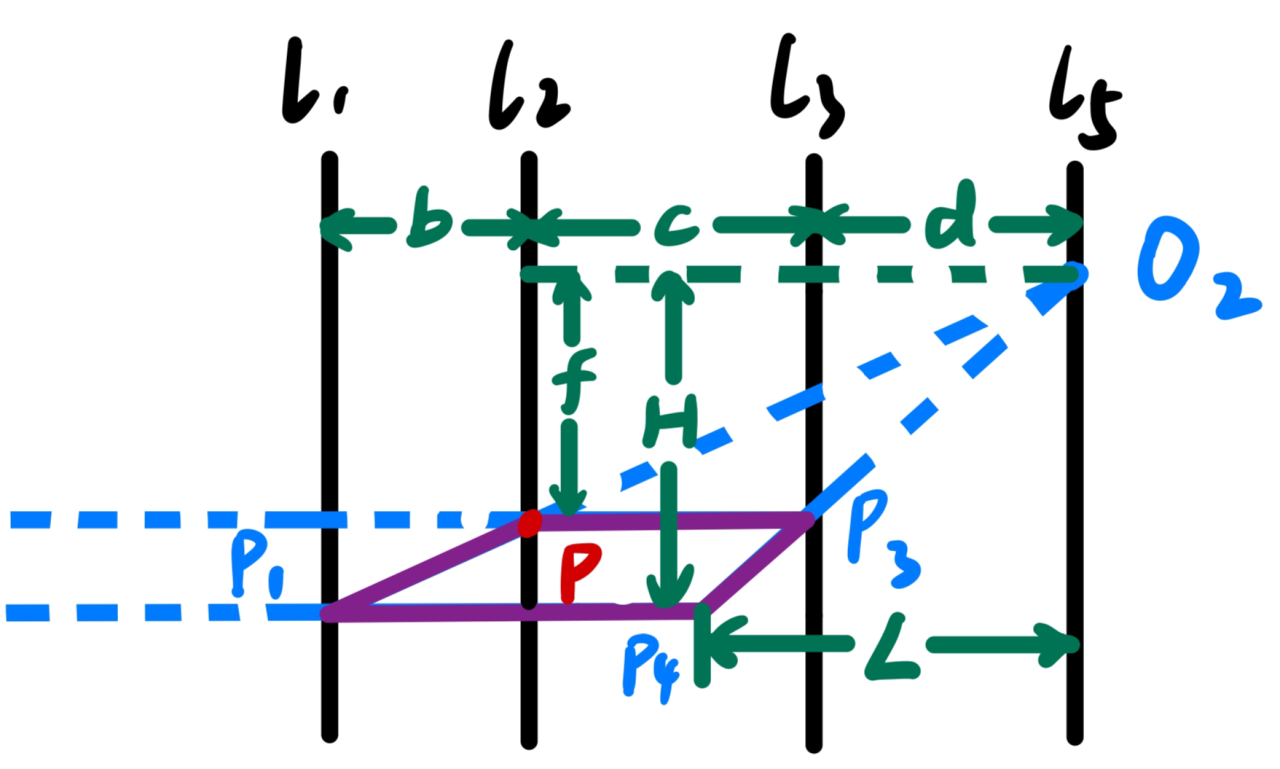 l₁ l₂ l₃ l₅
b c d
O₂
f
H
P₁ P P₃
P₄ L